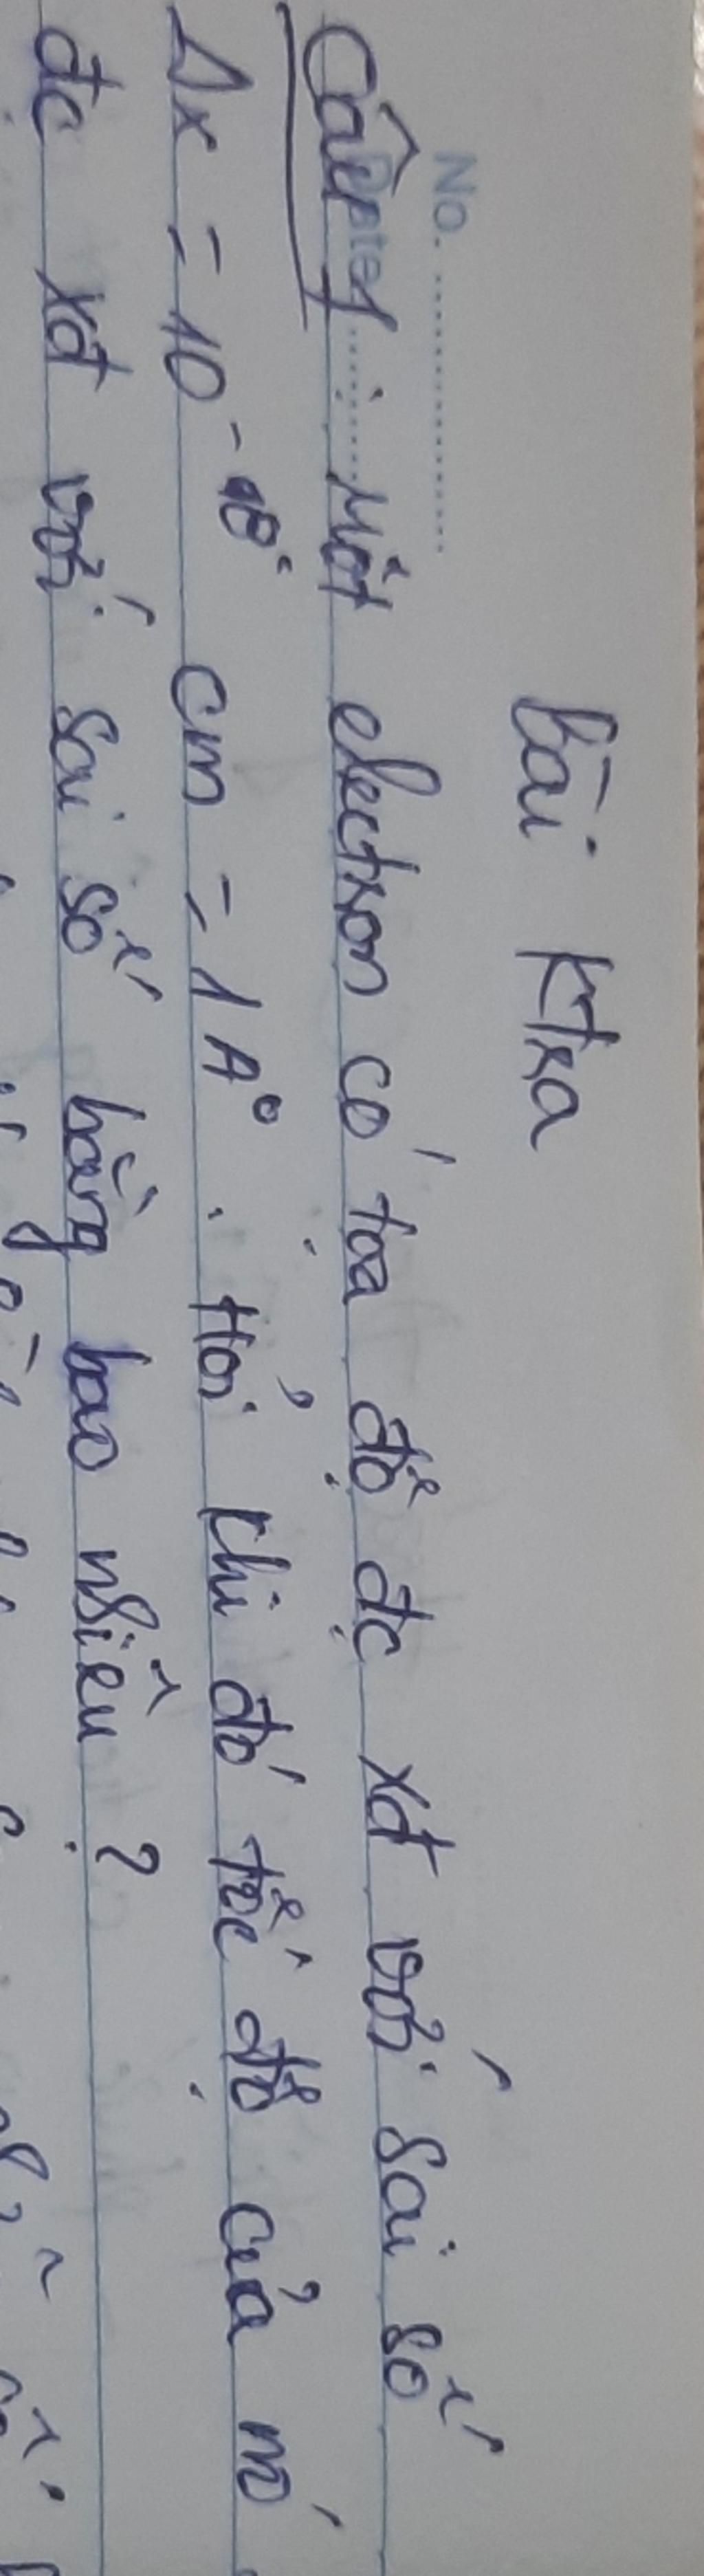 No.
Bài ktra
Date
Câu 1: Một electron có tọa độ đc xđ với sai số
Δx = 10⁻⁸ cm = 1 A°. Hỏi khi đó tốc độ của nó
đc xđ với sai số bằng bao nhiêu?